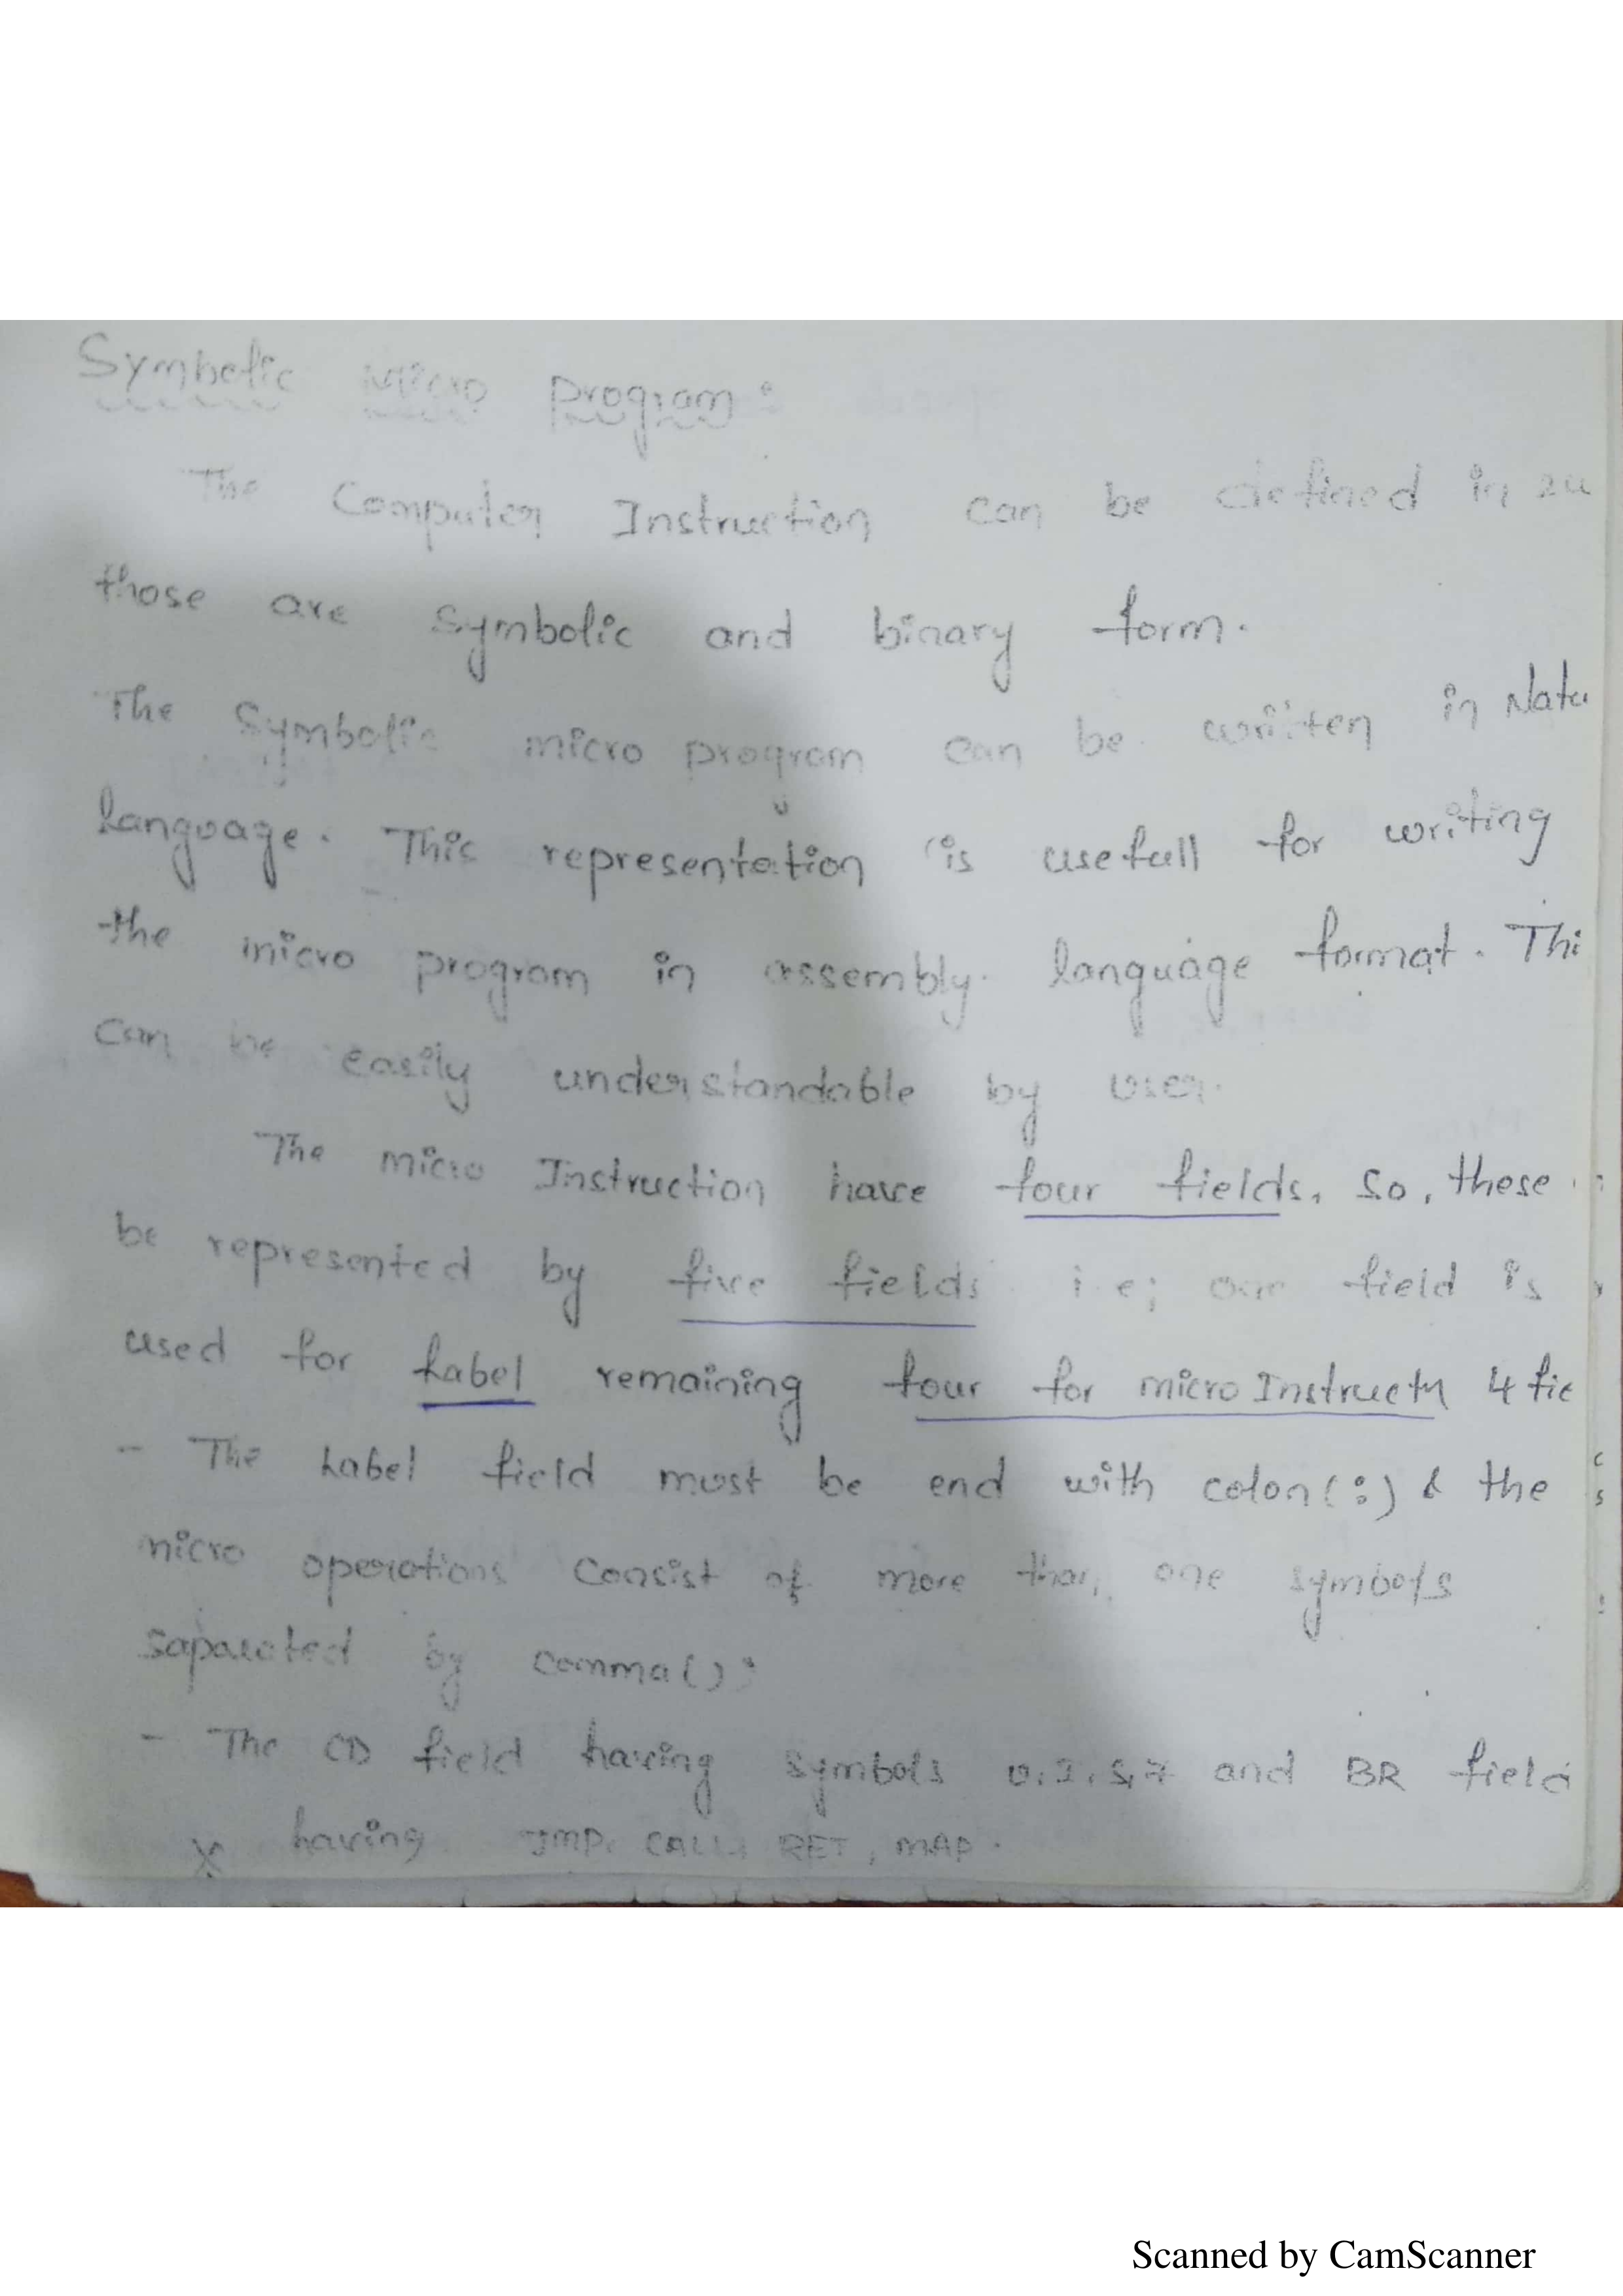 Symbolic Micro Program:
The Computer Instruction can be defined in 2w
those are symbolic and binary form.
The Symbolic micro program can be written in Natu
language. This representation is usefull for writing
the micro program in assembly language format. Thi
can be easily understandable by user.
The micro Instruction have four fields, so, these
be represented by five fields i.e; one field is
used for Label remaining four for micro Instructn 4 fie
- The Label field must be end with colon(:) & the
micro operations consist of more than one symbols
saparated by comma(,).
- The CD field having symbols U, I, S, Z and BR field
having JMP, CALL, RET, MAP.
Scanned by CamScanner